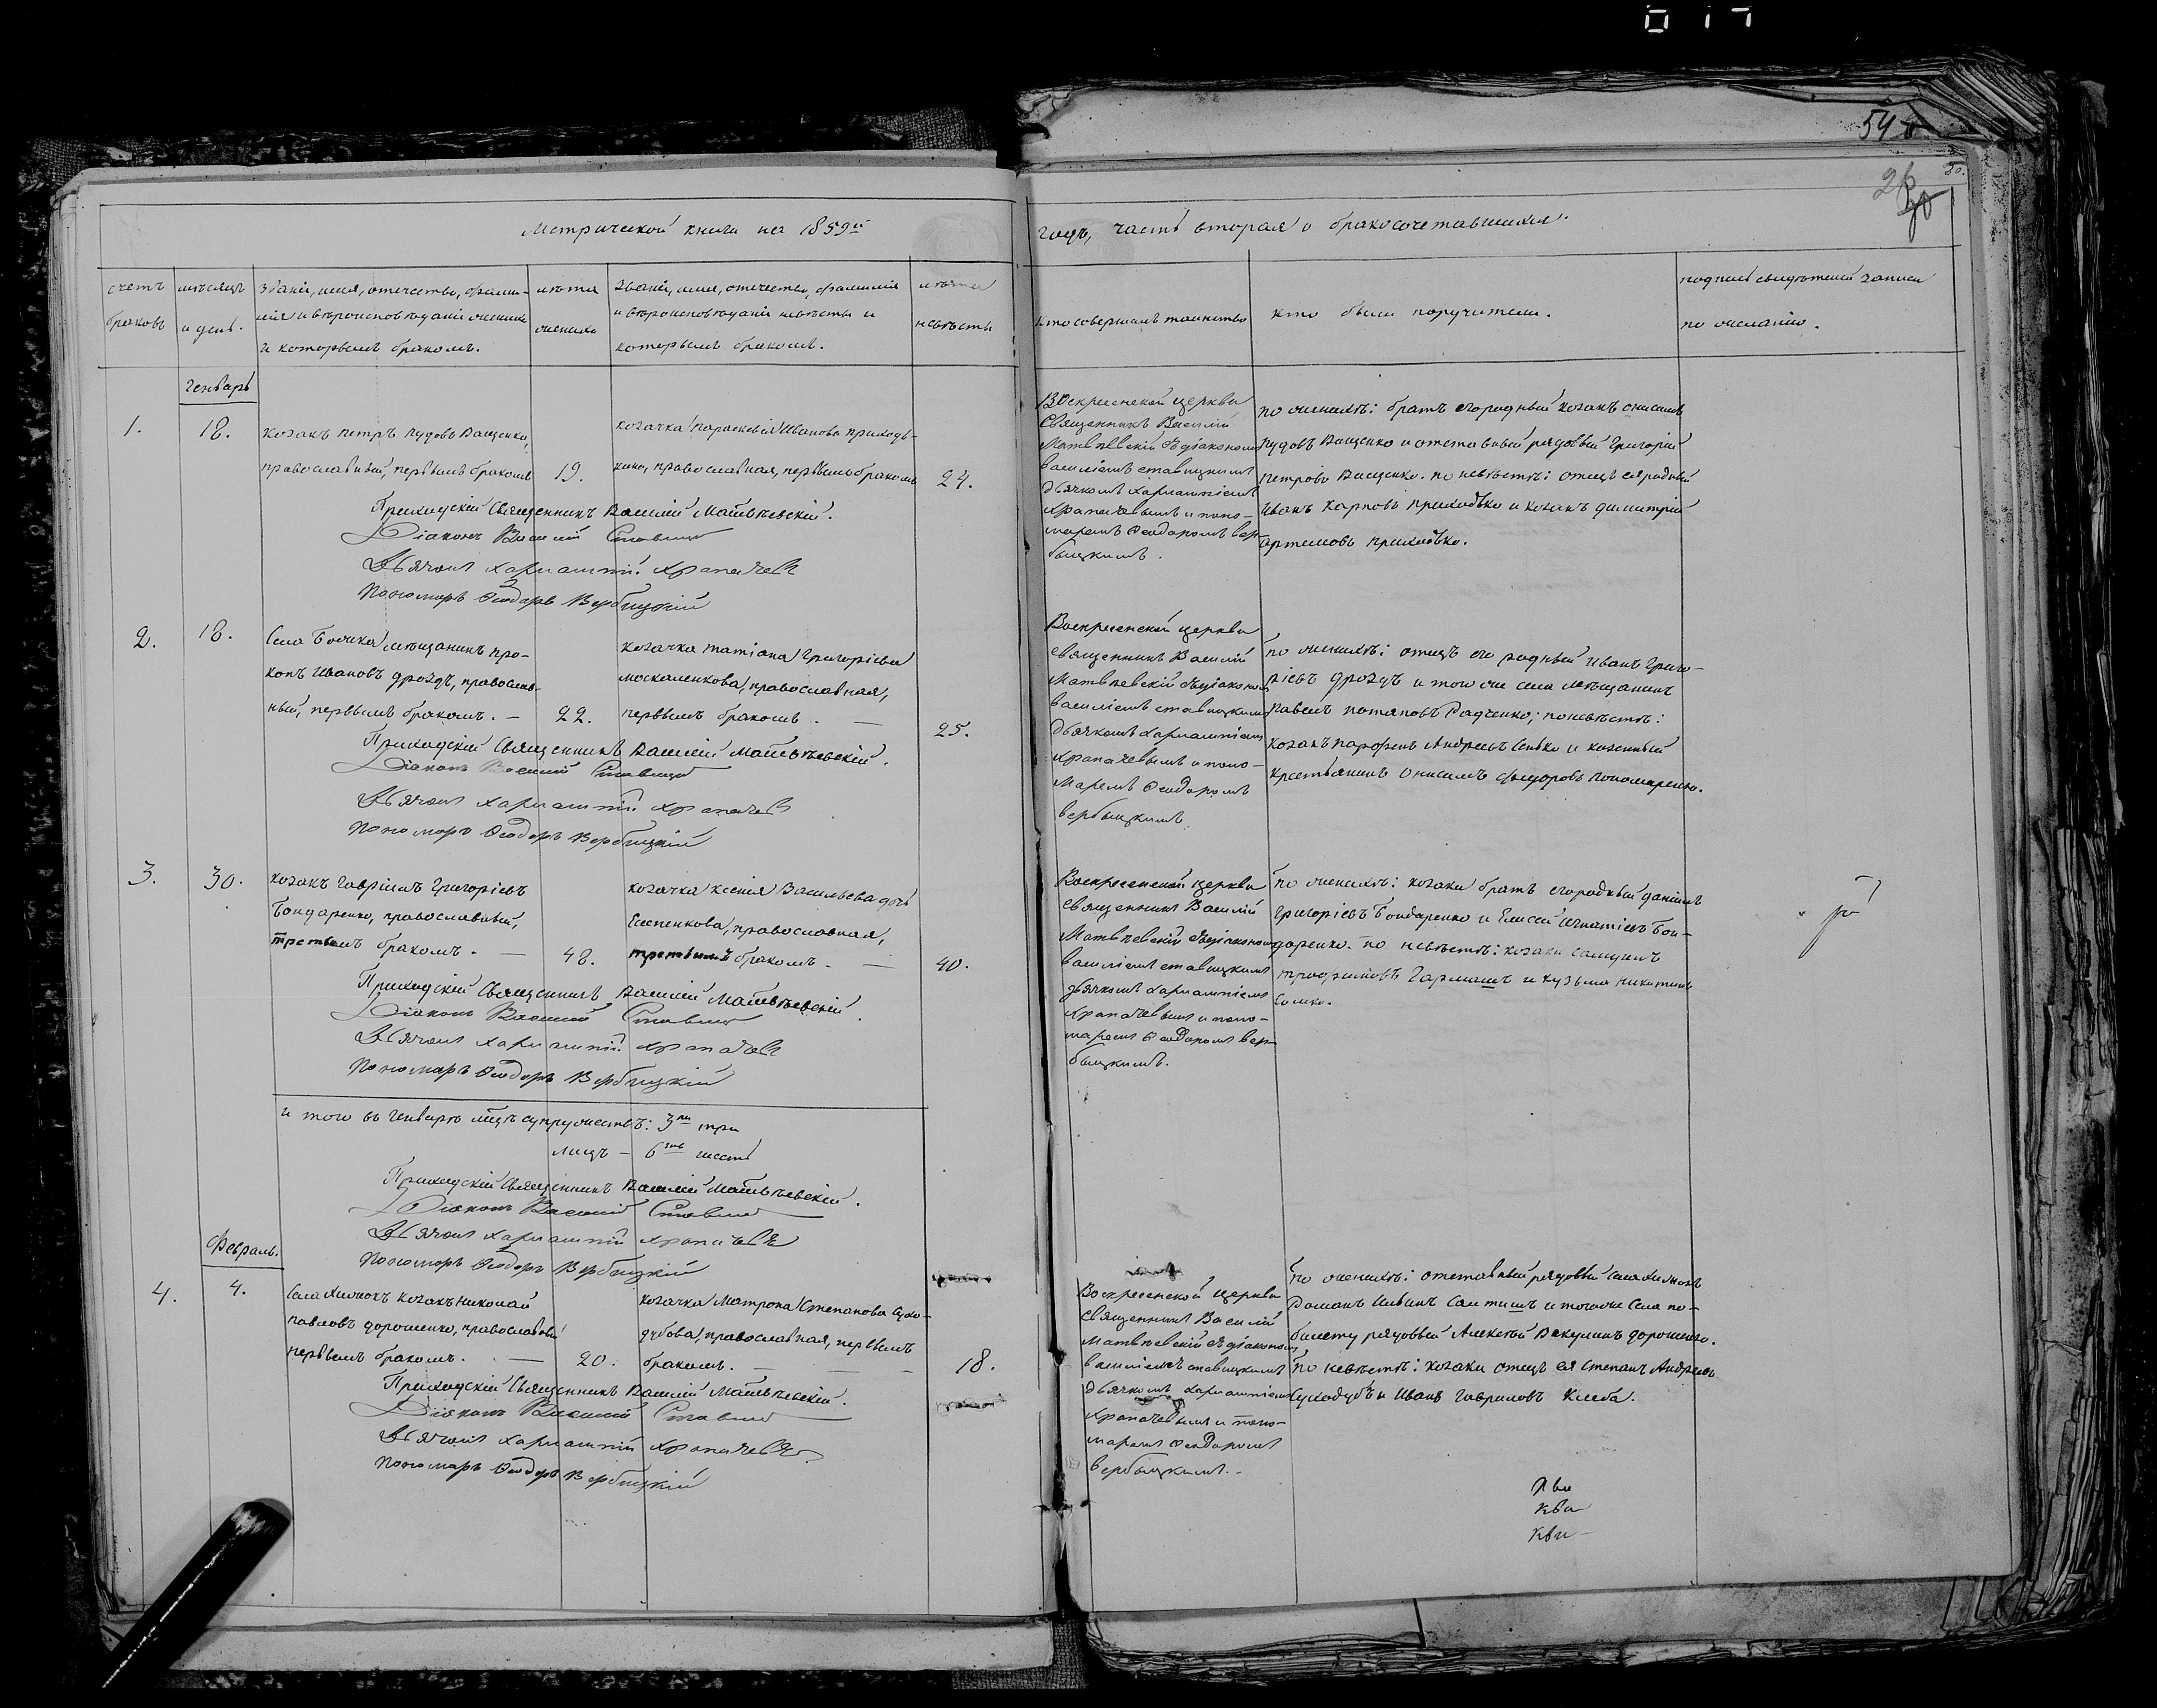 017
54
26
30
Метрической книги на 1859й
годъ, часть вторая о бракосочетавшихся.
счетъ браковъ
мѣсяцъ и день.
Званіе, имя, отечество, фами-
лія и вѣроисповѣданіе жениха
и которымъ бракомъ.
лѣта жениха
Званіе, имя, отечество, фамилія
и вѣроисповѣданіе невѣсты и
которымъ бракомъ.
лѣта невѣсты
кто совершалъ таинство
кто были поручители.
подпись свидѣтелей записи
по желанію.
Генварь
1.
18.
козакъ Петръ Пудовъ Ващенко,
православный, первымъ бракомъ
19.
козачка Параскевія Иванова Приходь-
кина, православная, первымъ бракомъ
24.
Приходскій Священникъ Василій Матвѣевскій.
Діаконъ Василій
Дьячокъ Харлампій Храпачевъ
Пономарь Ѳеодоръ Вербицкій
Воскресенской церкви
Священникъ Василій
Матвѣевскій съ діакономъ
Василіемъ Ставицкимъ
дьячкомъ Харлампіемъ
Храпачевымъ и поно-
маремъ Ѳеодоромъ Вер-
бицкимъ.
по женихѣ: братъ его родный козакъ Онисимъ
Пудовъ Ващенко и отставный рядовый Григорій
Петровъ Ващенко. по невѣстѣ: отецъ ея родный
Иванъ Карповъ Приходько и козакъ Димитрій
Артемовъ Приходько.
2.
18.
Села мѣщанинъ Про-
копъ Ивановъ Дроздъ, православ-
ный, первымъ бракомъ. —
22.
козачка Татіана Григоріева
Москаленкова, православная,
первымъ бракомъ. —
25.
Приходскій Священникъ Василій Матвѣевскій.
Діаконъ Василій
Дьячокъ Харлампій Храпачевъ
Пономарь Ѳеодоръ Вербицкій
Воскресенской церкви
Священникъ Василій
Матвѣевскій съ діакономъ
Василіемъ Ставицкимъ
дьячкомъ Харлампіемъ
Храпачевымъ и поно-
маремъ Ѳеодоромъ
Вербицкимъ.
по женихѣ: отецъ его родный Иванъ Григо-
ріевъ Дроздъ и того же села мѣщанинъ
Павелъ Потаповъ Радченко; по невѣстѣ:
козакъ Парфенъ Андреевъ и казенный
крестьянинъ Онисимъ Федоровъ Пономаренко.
3.
30.
козакъ Гавріилъ Григоріевъ
Бондаренко, православный,
третьимъ бракомъ. —
48.
козачка Ксенія Васильева дочь
православная,
третьимъ бракомъ. —
40.
Приходскій Священникъ Василій Матвѣевскій.
Діаконъ Василій
Дьячокъ Харлампій Храпачевъ
Пономарь Ѳеодоръ Вербицкій
Воскресенской церкви
Священникъ Василій
Матвѣевскій съ діакономъ
Василіемъ Ставицкимъ
дьячкомъ Харлампіемъ
Храпачевымъ и поно-
маремъ Ѳеодоромъ Вер-
бицкимъ.
по женихѣ: козаки братъ его родный Даніилъ
Григоріевъ Бондаренко и Елисей Игнатіевъ Бон-
даренко. по невѣстѣ: козаки Самуилъ
Трофимовъ Гармашъ и Кузьма Никитинъ
и того въ Генварѣ мцѣ супружествъ: 3ри три
лицъ — 6ть шесть
Приходскій Священникъ Василій Матвѣевскій.
Діаконъ Василій
Дьячокъ Харлампій Храпачевъ
Пономарь Ѳеодоръ Вербицкій
Февраль.
4.
4.
Села козакъ Николай
Павловъ Дорошенко, православный
первымъ бракомъ. —
20.
козачка Матрона Степанова Сухо-
дубова, православная, первымъ
бракомъ. —
18.
Приходскій Священникъ Василій Матвѣевскій.
Діаконъ Василій
Дьячокъ Харлампій Храпачевъ
Пономарь Ѳеодоръ Вербицкій
Воскресенской церкви
Священникъ Василій
Матвѣевскій съ діакономъ
Василіемъ Ставицкимъ
дьячкомъ Харлампіемъ
Храпачевымъ и поно-
маремъ Ѳеодоромъ
Вербицкимъ. -
по женихѣ: отставный рядовый села
Романъ и того же села по-
билету рядовый Алексѣй Вакулинъ Дорошенко.
по невѣстѣ: козаки отецъ ея Степанъ Андреевъ
Суходубъ и Иванъ Гавриловъ